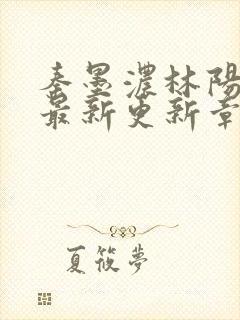 秦墨濃林陽
最新更新章
夏筱夢